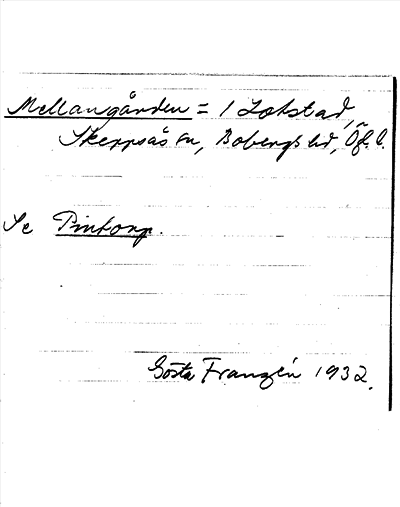 Mellangården = 1 Lokstad,
Skeppsås sn, Bobergs hd, Ög. l.
Se Pintorp.
Gösta Franzén 1932.